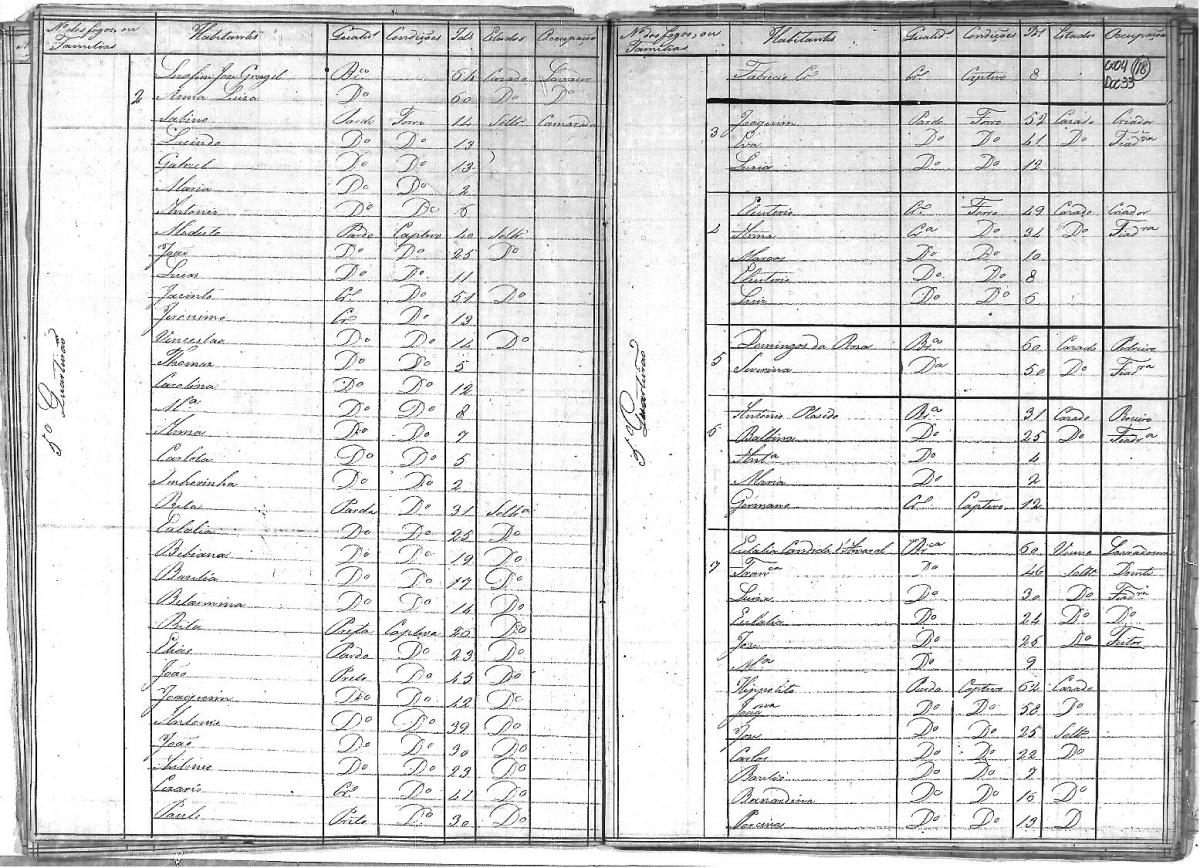 Nº dos fogos, ou Familias Habitantes Qualid.s Condições Id.s Estados Occupação
Serafim José Gurgel Br.co 64 Casado Lavrador
2 Anna Luiza Dº 60 Dº Dº
Sabino Pardo Forro 14 Soltr. Camarada
Lucindo Dº Dº 13
Gabriel Dº Dº 13
Maria Dº Dº 2
Antonio Dº Dº 6
Modesto Pardo Captivo 40 Soltr.
João Dº Dº 25 Dº
Lucas Dº Dº 11
Jacinto Cr.º Dº 51 Dº
Jeronimo Cr.º Dº 13
Vinceslao Dº Dº 14 Dº
Thomaz Dº Dº 5
Carolina Dº Dº 12
M.a Dº Dº 8
Anna Dº Dº 7
Carlota Dº Dº 5
Dº Dº 2
Rita Parda Dº 31 Soltr.a
Eulalia Dº Dº 25 Dº
Bibiana Dº Dº 19 Dº
Basilia Dº Dº 17 Dº
Belarmina Dº Dº 14 Dº
Rita Preta Captiva 20 Dº
Elias Pardo Dº 23 Dº
João Preto Dº 45 Dº
Joaquim Dº Dº 42 Dº
Antonio Dº Dº 39 Dº
João Dº Dº 30 Dº
Antonio Dº Dº 23 Dº
Cesario Cr.º Dº 41 Dº
Paulo Preto Dº 30 Dº
5º Quarteirão
Nº dos fogos, ou Familias Habitantes Qualid.s Condições Id.s Estados Occupação
C004 (18)
Doc 33
Fabricio Cr.º Cr.º Captivo 8
3 Joaquim Pardo Forro 52 Casado Criador
Eva Dº Dº 41 Dº Fiadr.a
Luzia Dº Dº 12
4 Eleuterio Cr.º Forro 49 Casado Criador
Anna Cr.a Dº 34 Dº Fiadr.a
Marcos Dº Dº 10
Eleuterio Dº Dº 8
Luiz Dº Dº 6
5 Domingos da Rosa Br.a 60 Casado Pedreiro
Severina Dª 50 Dº Fiadr.a
6 Antonio Placido Br.a 31 Casado Roceiro
Balbina Dº 25 Dº Fiadr.a
Ant.a Dº 4
Maria Dº 2
Germano Cr.º Captivo 12
7 Eulalia Candida d'Amaral Br.ca 60 Viuva Lavradora
Fran.ca Dº 46 Soltr.
Luiza Dº 30 Dº Fiadr.a
Eulalia Dº 24 Dº Dº
José Dº 25 Dº Feitor
M.a Dº 9
Hippolito Pardo Captivo 62 Casado
Dº Dº 58 Dº
José Dº Dº 25 Soltr.º
Carlos Dº Dº 22 Dº
Basilio Dº Dº 7
Bernardina Dº Dº 16 Dº
Dº Dº 13 D
5º Quarteirão